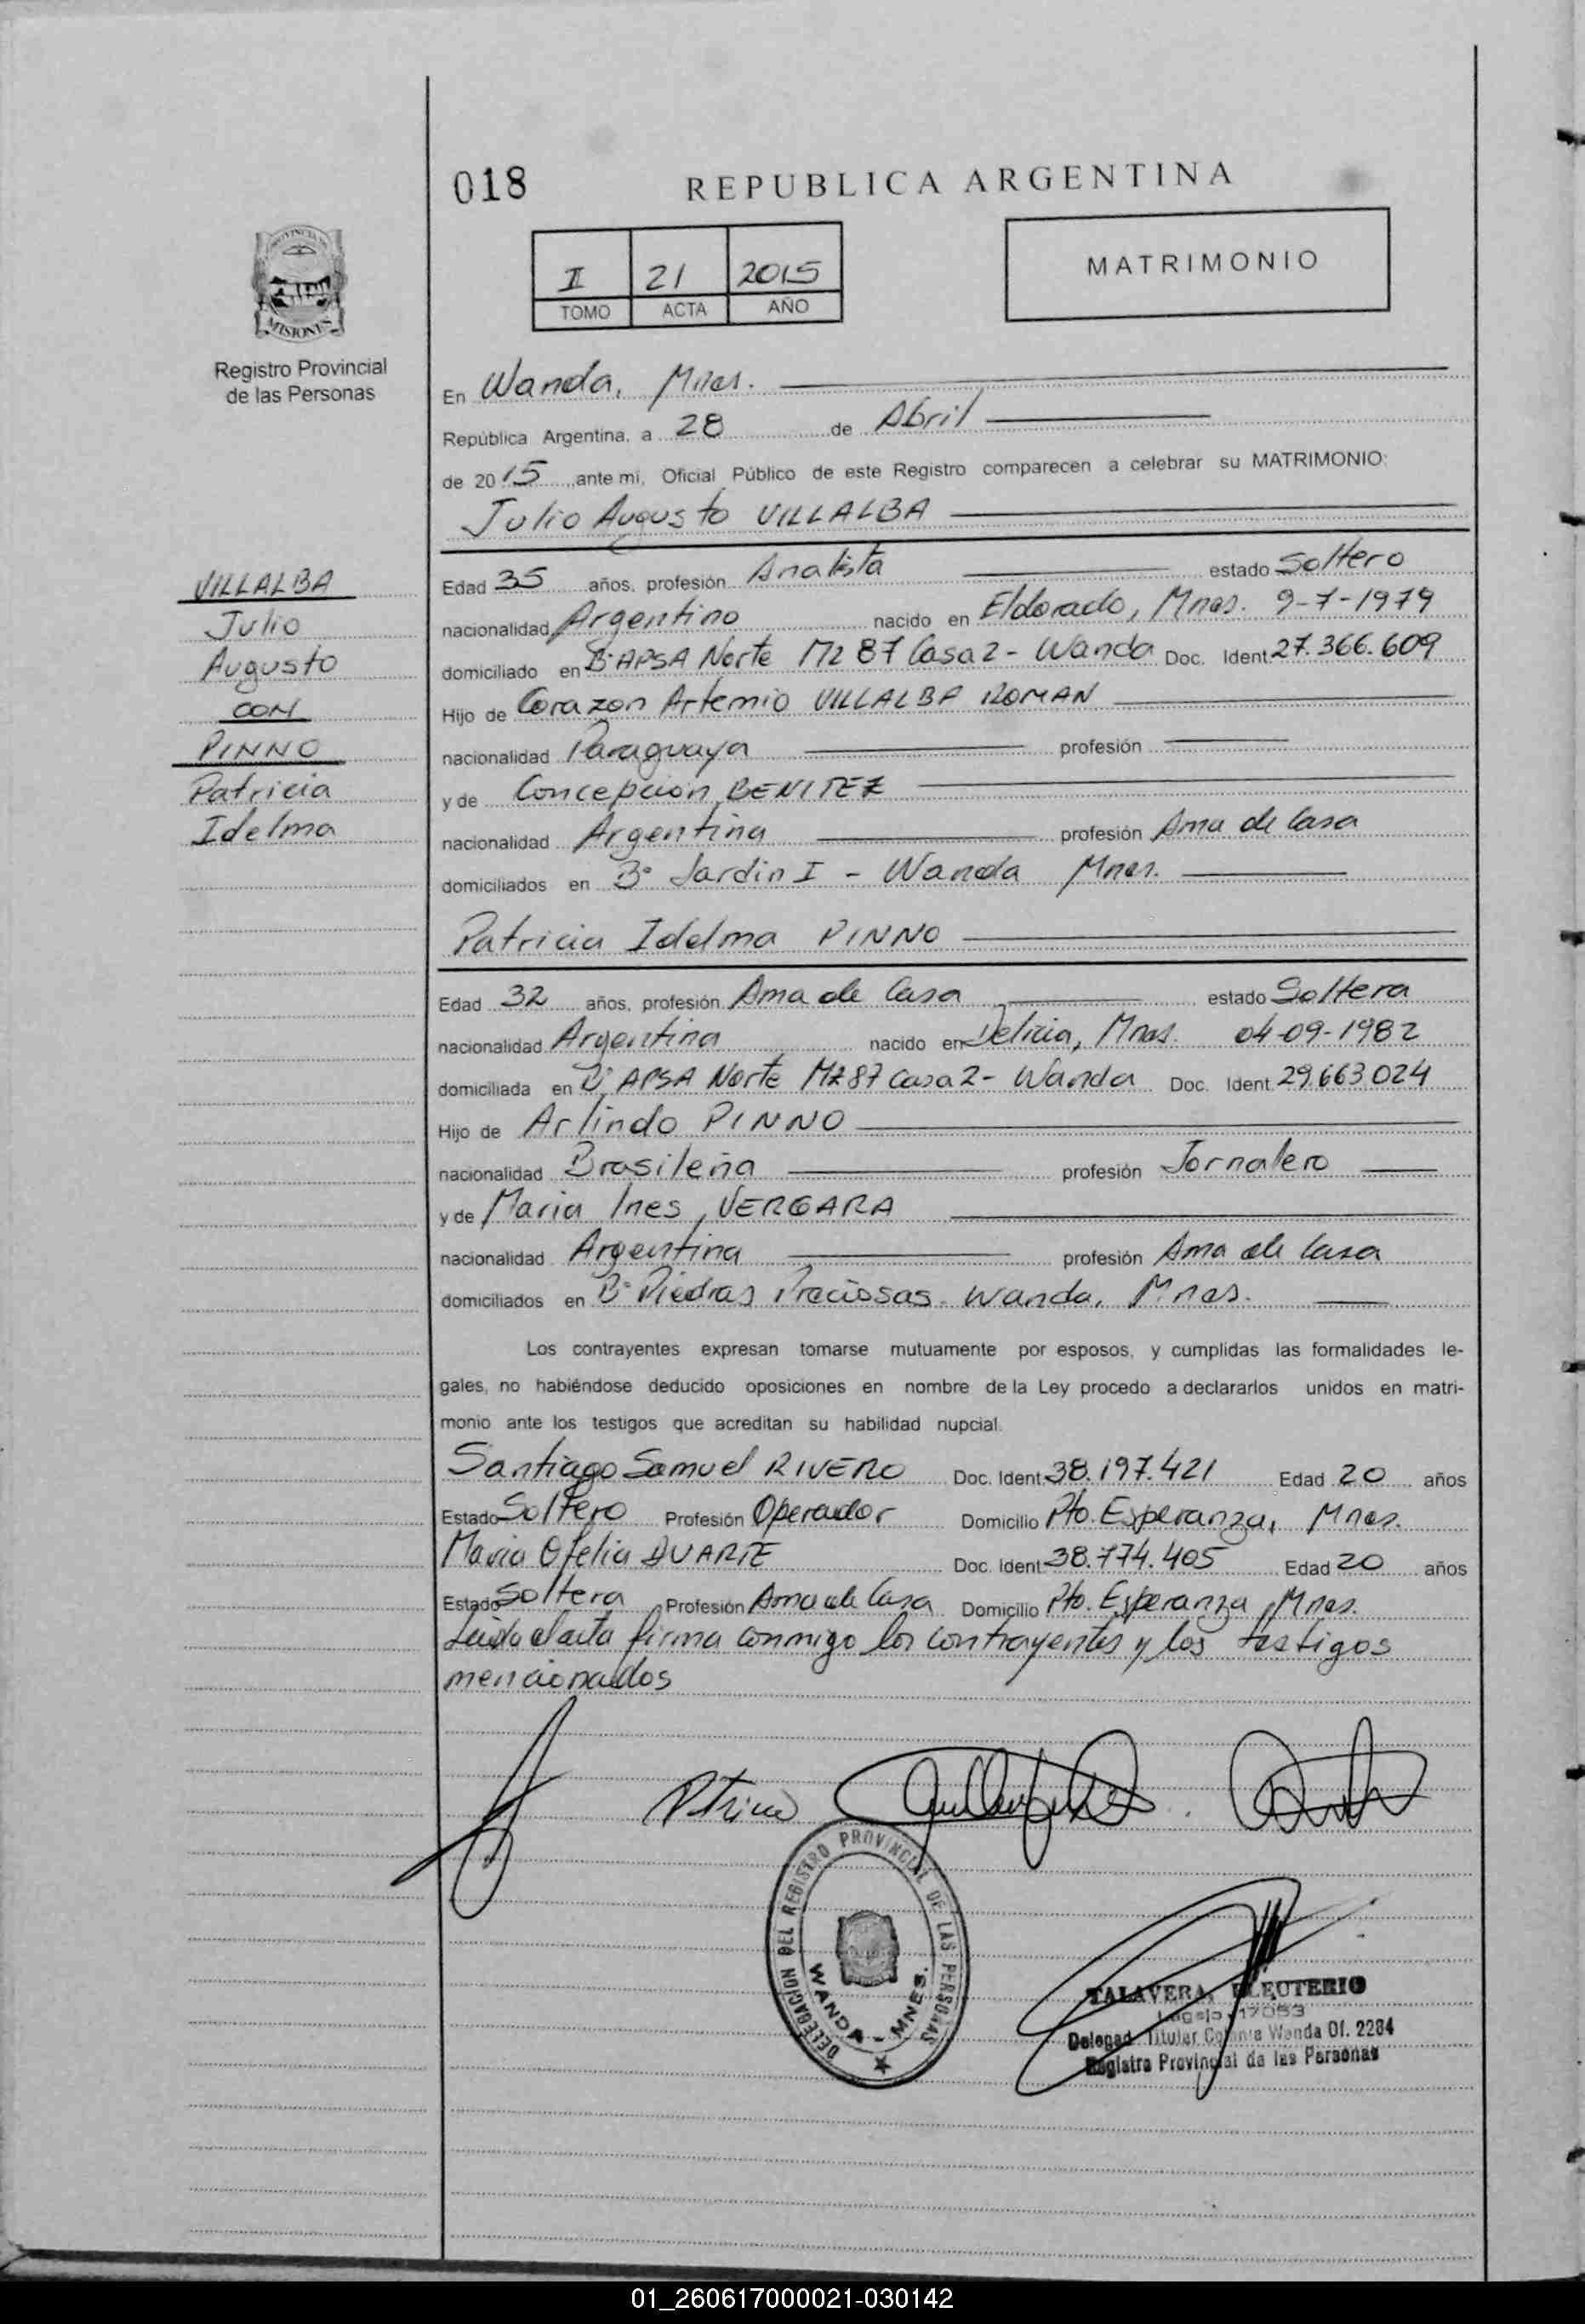 018
REPUBLICA ARGENTINA
II 21 2015
TOMO ACTA AÑO
MATRIMONIO
PROVINCIA DE
MISIONES
Registro Provincial
de las Personas
En Wanda, Mnes.
República Argentina, a 28 de Abril
de 2015, ante mi, Oficial Público de este Registro comparecen a celebrar su MATRIMONIO:
Julio Augusto VILLALBA
VILLALBA
Julio
Augusto
CON
PINNO
Patricia
Idelma
Edad 35 años, profesión Analista estado Soltero
nacionalidad Argentino nacido en Eldorado, Mnes. 9-7-1979
domiciliado en B° APSA Norte Mz 87 Casa 2 - Wanda Doc. Ident 27.366.609
Hijo de Corazon Artemio VILLALBA ROMAN
nacionalidad Paraguaya profesión
y de Concepcion BENITEZ
nacionalidad Argentina profesión Ama de Casa
domiciliados en B° Jardin I - Wanda Mnes.
Patricia Idelma PINNO
Edad 32 años, profesión Ama de Casa estado Soltera
nacionalidad Argentina nacido en Delicia, Mnes. 04-09-1982
domiciliada en B° APSA Norte Mz 87 Casa 2 - Wanda Doc. Ident. 29.663.024
Hijo de Arlindo PINNO
nacionalidad Brasileña profesión Jornalero
y de Maria Ines VERGARA
nacionalidad Argentina profesión Ama de Casa
domiciliados en B° Piedras Preciosas - Wanda, Mnes.
Los contrayentes expresan tomarse mutuamente por esposos, y cumplidas las formalidades le-
gales, no habiéndose deducido oposiciones en nombre de la Ley procedo a declararlos unidos en matri-
monio ante los testigos que acreditan su habilidad nupcial.
Santiago Samuel RIVERO Doc. Ident 38.197.421 Edad 20 años
Estado Soltero Profesión Operador Domicilio Pto. Esperanza, Mnes.
Maria Ofelia DUARTE Doc. Ident 38.774.405 Edad 20 años
Estado Soltera Profesión Ama de Casa Domicilio Pto. Esperanza, Mnes.
Leida el acta firma conmigo los contrayentes y los testigos
mencionados
Patricia
DELEGACION DEL REGISTRO PROVINCIAL DE LAS PERSONAS
WANDA - MNES.
TALAVERA, ELEUTERIO
Legajo 17053
Delegad Titular Colonia Wanda Of. 2284
Registro Provincial de las Personas
01_260617000021-030142